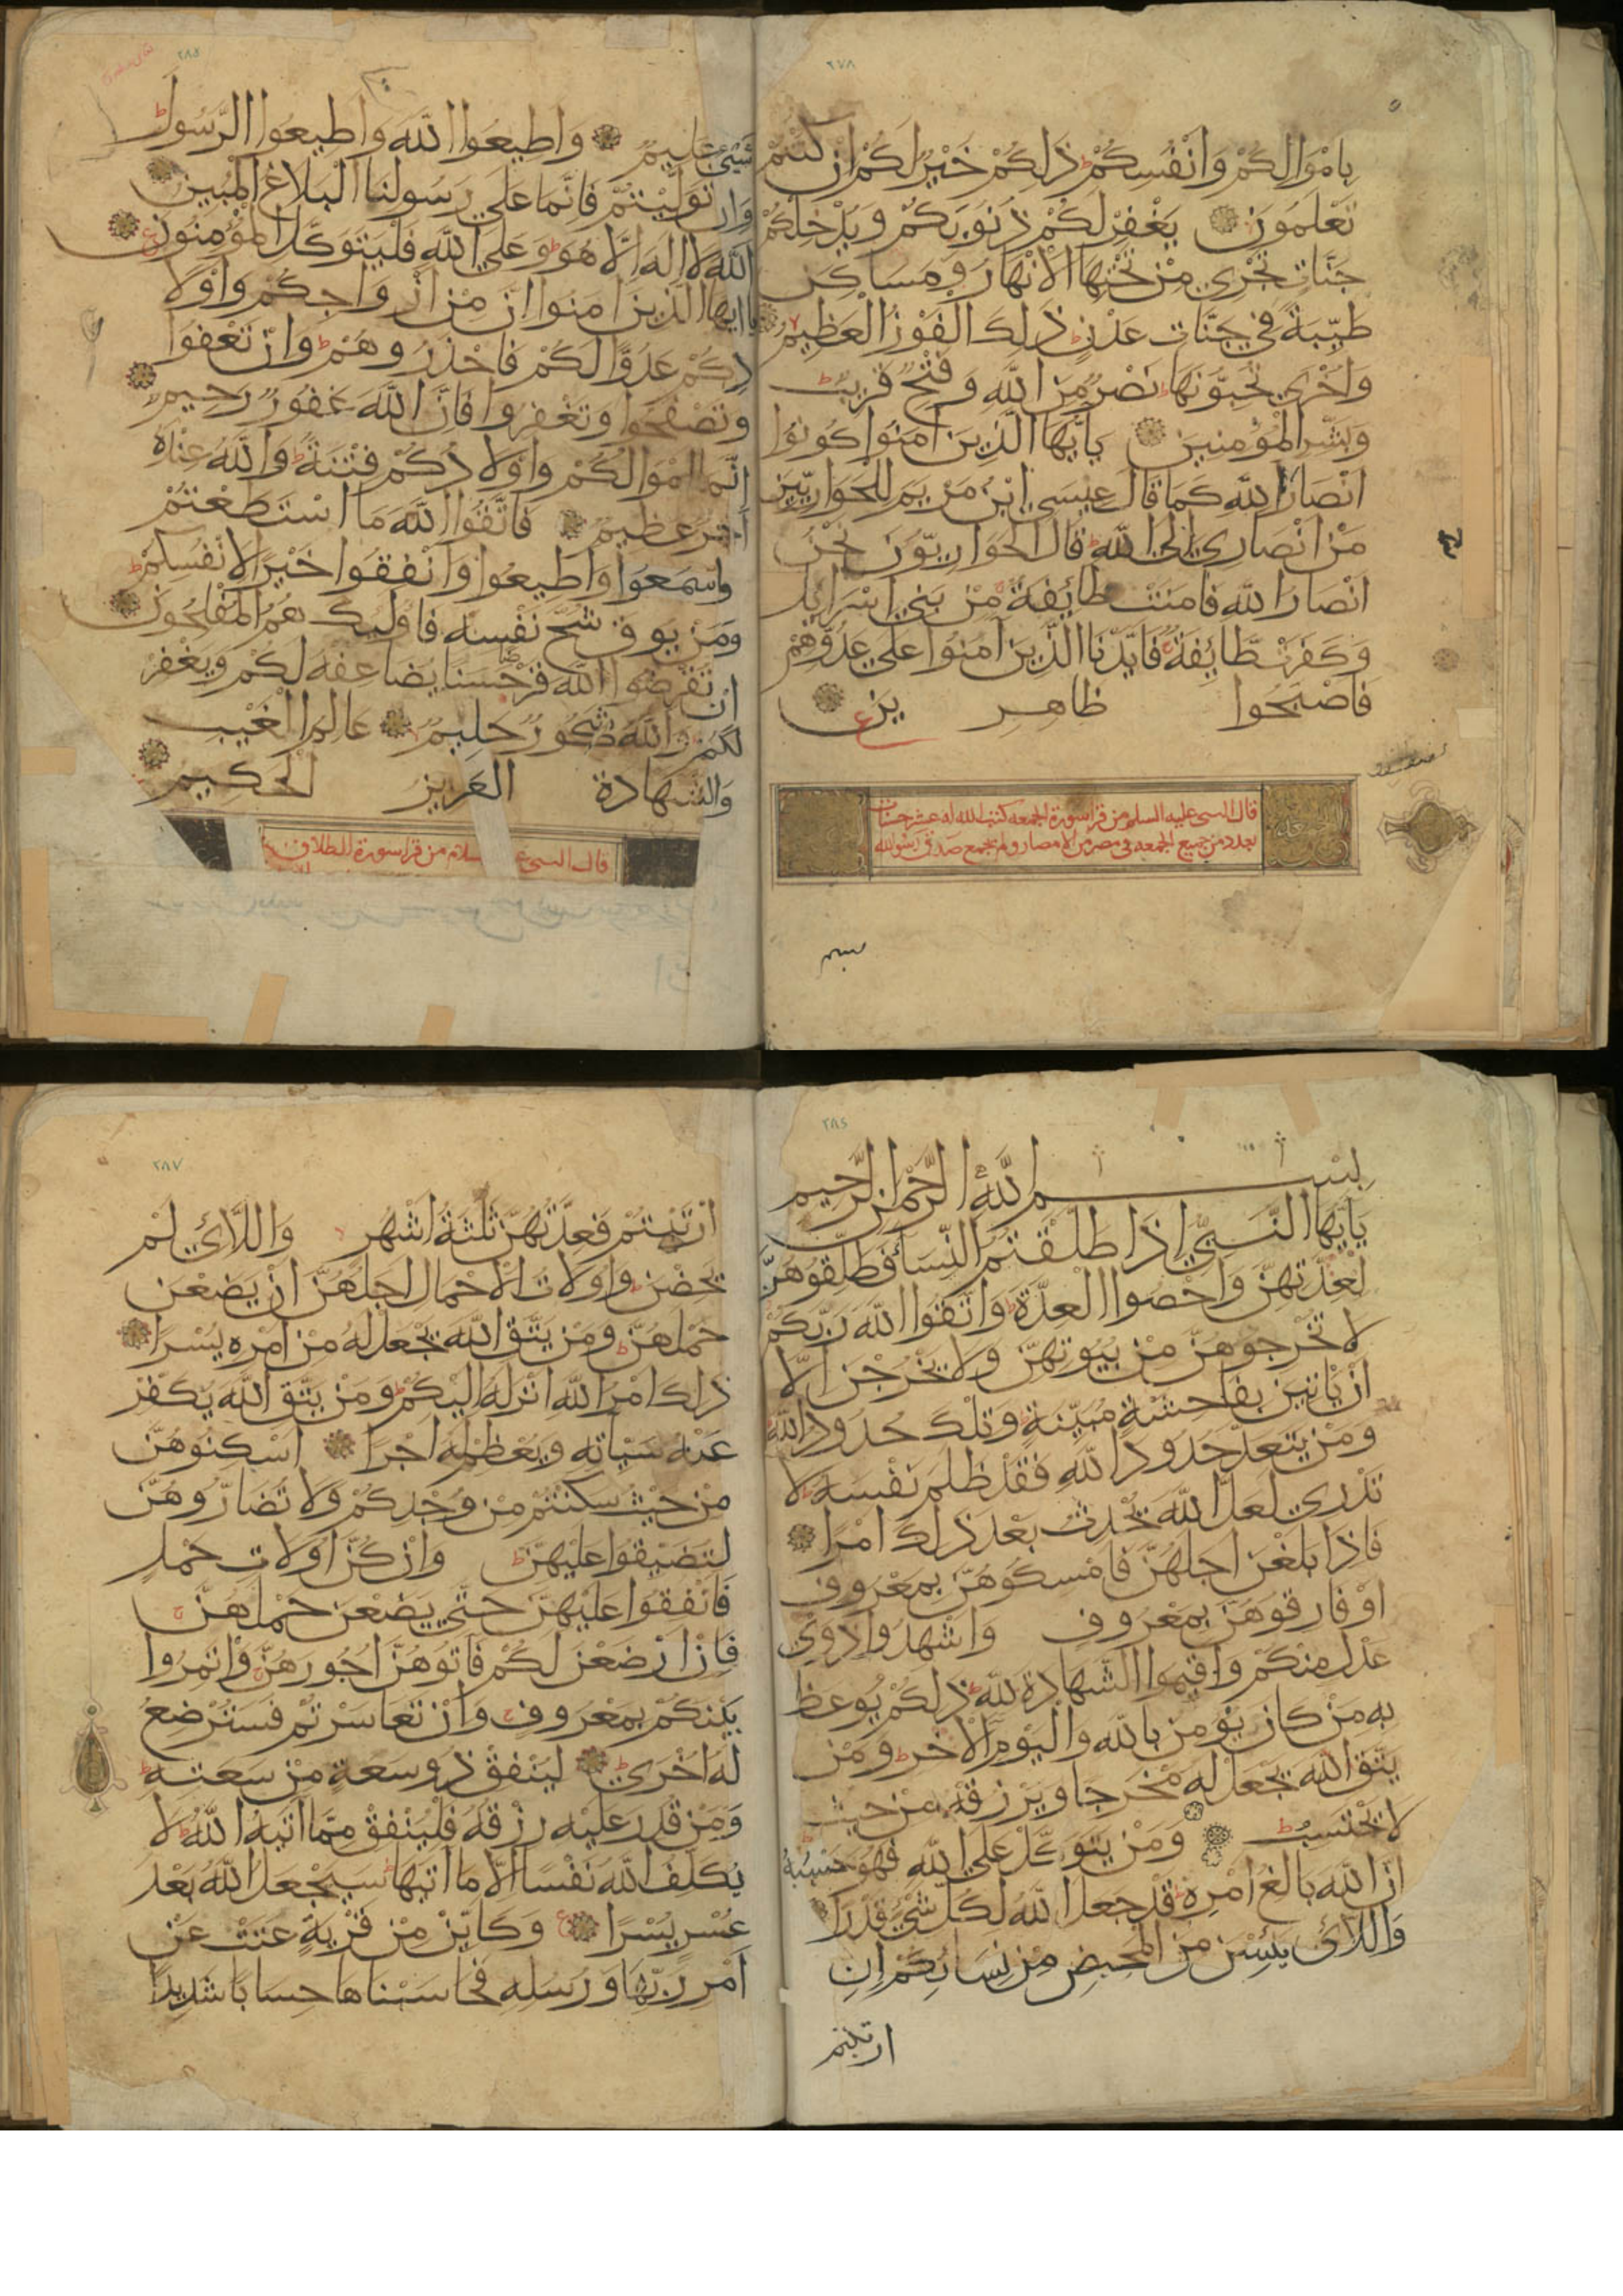 ٢٧٨
باموالكم وانفسكم ذلكم خير لكم ان كنتم
تعلمون يغفر لكم ذنوبكم ويدخلكم
جنات تجري من تحتها الانهار ومساكن
طيبة في جنات عدن ذلك الفوز العظيم
واخرى تحبونها نصر من الله وفتح قريب
وبشر المؤمنين يا ايها الذين امنوا كونوا
انصار الله كما قال عيسى ابن مريم للحواريين
من انصاري الى الله قال الحواريون نحن
انصار الله فامنت طائفة من بني اسرايل
وكفرت طايفة فايدنا الذين امنوا على عدوهم
فاصبحوا ظاهرين
قال النبي عليه السلم من قرا سورة الجمعه كتب الله له عشر حسنات
بعدد من جميع الجمعه في مصر من الامصار ولم يجمع صدق رسول الله
٢٨٥
شيئ عليم واطيعوا الله واطيعوا الرسول
وان توليتم فانما على رسولنا البلاغ المبين
الله لا اله الا هو وعلى الله فليتوكل المؤمنون
يا ايها الذين امنوا ان من ازواجكم واولا
دكم عدوا لكم فاحذروهم وان تعفوا
وتصفحوا وتغفروا فان الله غفور رحيم
انما اموالكم واولادكم فتنة والله عنده
اجر عظيم فاتقوا الله ما استطعتم
واسمعوا واطيعوا وانفقوا خيرا لانفسكم
ومن يوق شح نفسه فاوليك هم المفلحون
ان تقرضوا الله قرضا حسنا يضاعفه لكم ويغفر
لكم والله شكور حليم عالم الغيب
والشهادة العزيز الحكيم
قال النبي سلام من قرا سورة الطلاق
٢٨٤
بسم الله الرحمن الرحيم
يا ايها النبي اذا طلقتم النسا فطلقوهن
لعدتهن واحصوا العدة واتقوا الله ربكم
لا تخرجوهن من بيوتهن ولا يخرجن الا
ان ياتين بفاحشة مبينة وتلك حدود الله
ومن يتعد حدود الله فقد ظلم نفسه لا
تدري لعل الله يحدث بعد ذلك امرا
فاذا بلغن اجلهن فامسكوهن بمعروف
او فارقوهن بمعروف واشهدوا ذوي
عدل منكم واقيموا الشهادة لله ذلكم يوعظ
به من كان يؤمن بالله واليوم الاخر ومن
يتق الله يجعل له مخرجا ويرزقه من حيث
لا يحتسب ومن يتوكل على الله فهو حسبه
ان الله بالغ امره قد جعل الله لكل شيء قدرا
واللائ يئسن من المحيض من نسائكم ان
ارتبتم
٢٨٧
ارتبتم فعدتهن ثلثة اشهر واللائ لم
يحضن واولات الاحمال اجلهن ان يضعن
حملهن ومن يتق الله يجعل له من امره يسرا
ذلك امر الله انزله اليكم ومن يتق الله يكفر
عنه سياته ويعظم له اجرا اسكنوهن
من حيث سكنتم من وجدكم ولا تضاروهن
لتضيقوا عليهن وان كن اولات حمل
فانفقوا عليهن حتى يضعن حملهن
فان ارضعن لكم فاتوهن اجورهن واتمروا
بينكم بمعروف وان تعاسرتم فسترضع
له اخرى لينفق ذو سعة من سعته
ومن قدر عليه رزقه فلينفق مما اتيه الله لا
يكلف الله نفسا الا ما اتيها سيجعل الله بعد
عسر يسرا وكاين من قرية عتت عن
امر ربها ورسله فحاسبناها حسابا شديدا